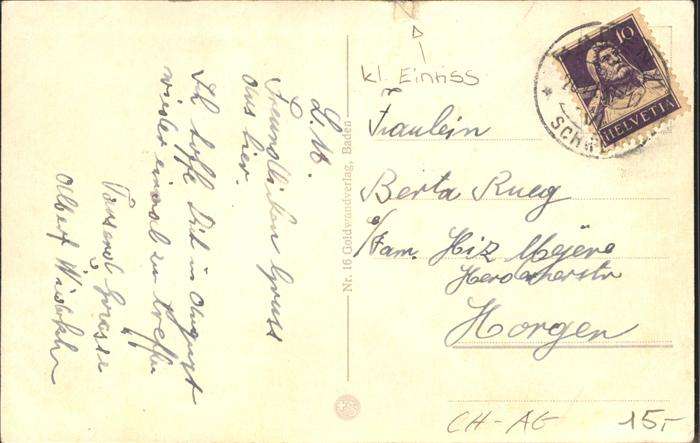 L. M.
Freundlichen Gruss
aus hier.
Ich hoffe Dich in August
wieder einmal zu treffen
Tausend Grüsse
Albert
Nr. 16 Goldwandverlag, Baden
kl. Einriss
10
HELVETIA
Fräulein
Berta Rueg
c/Fam. Hiz
Horgen
CH-AG
15.-